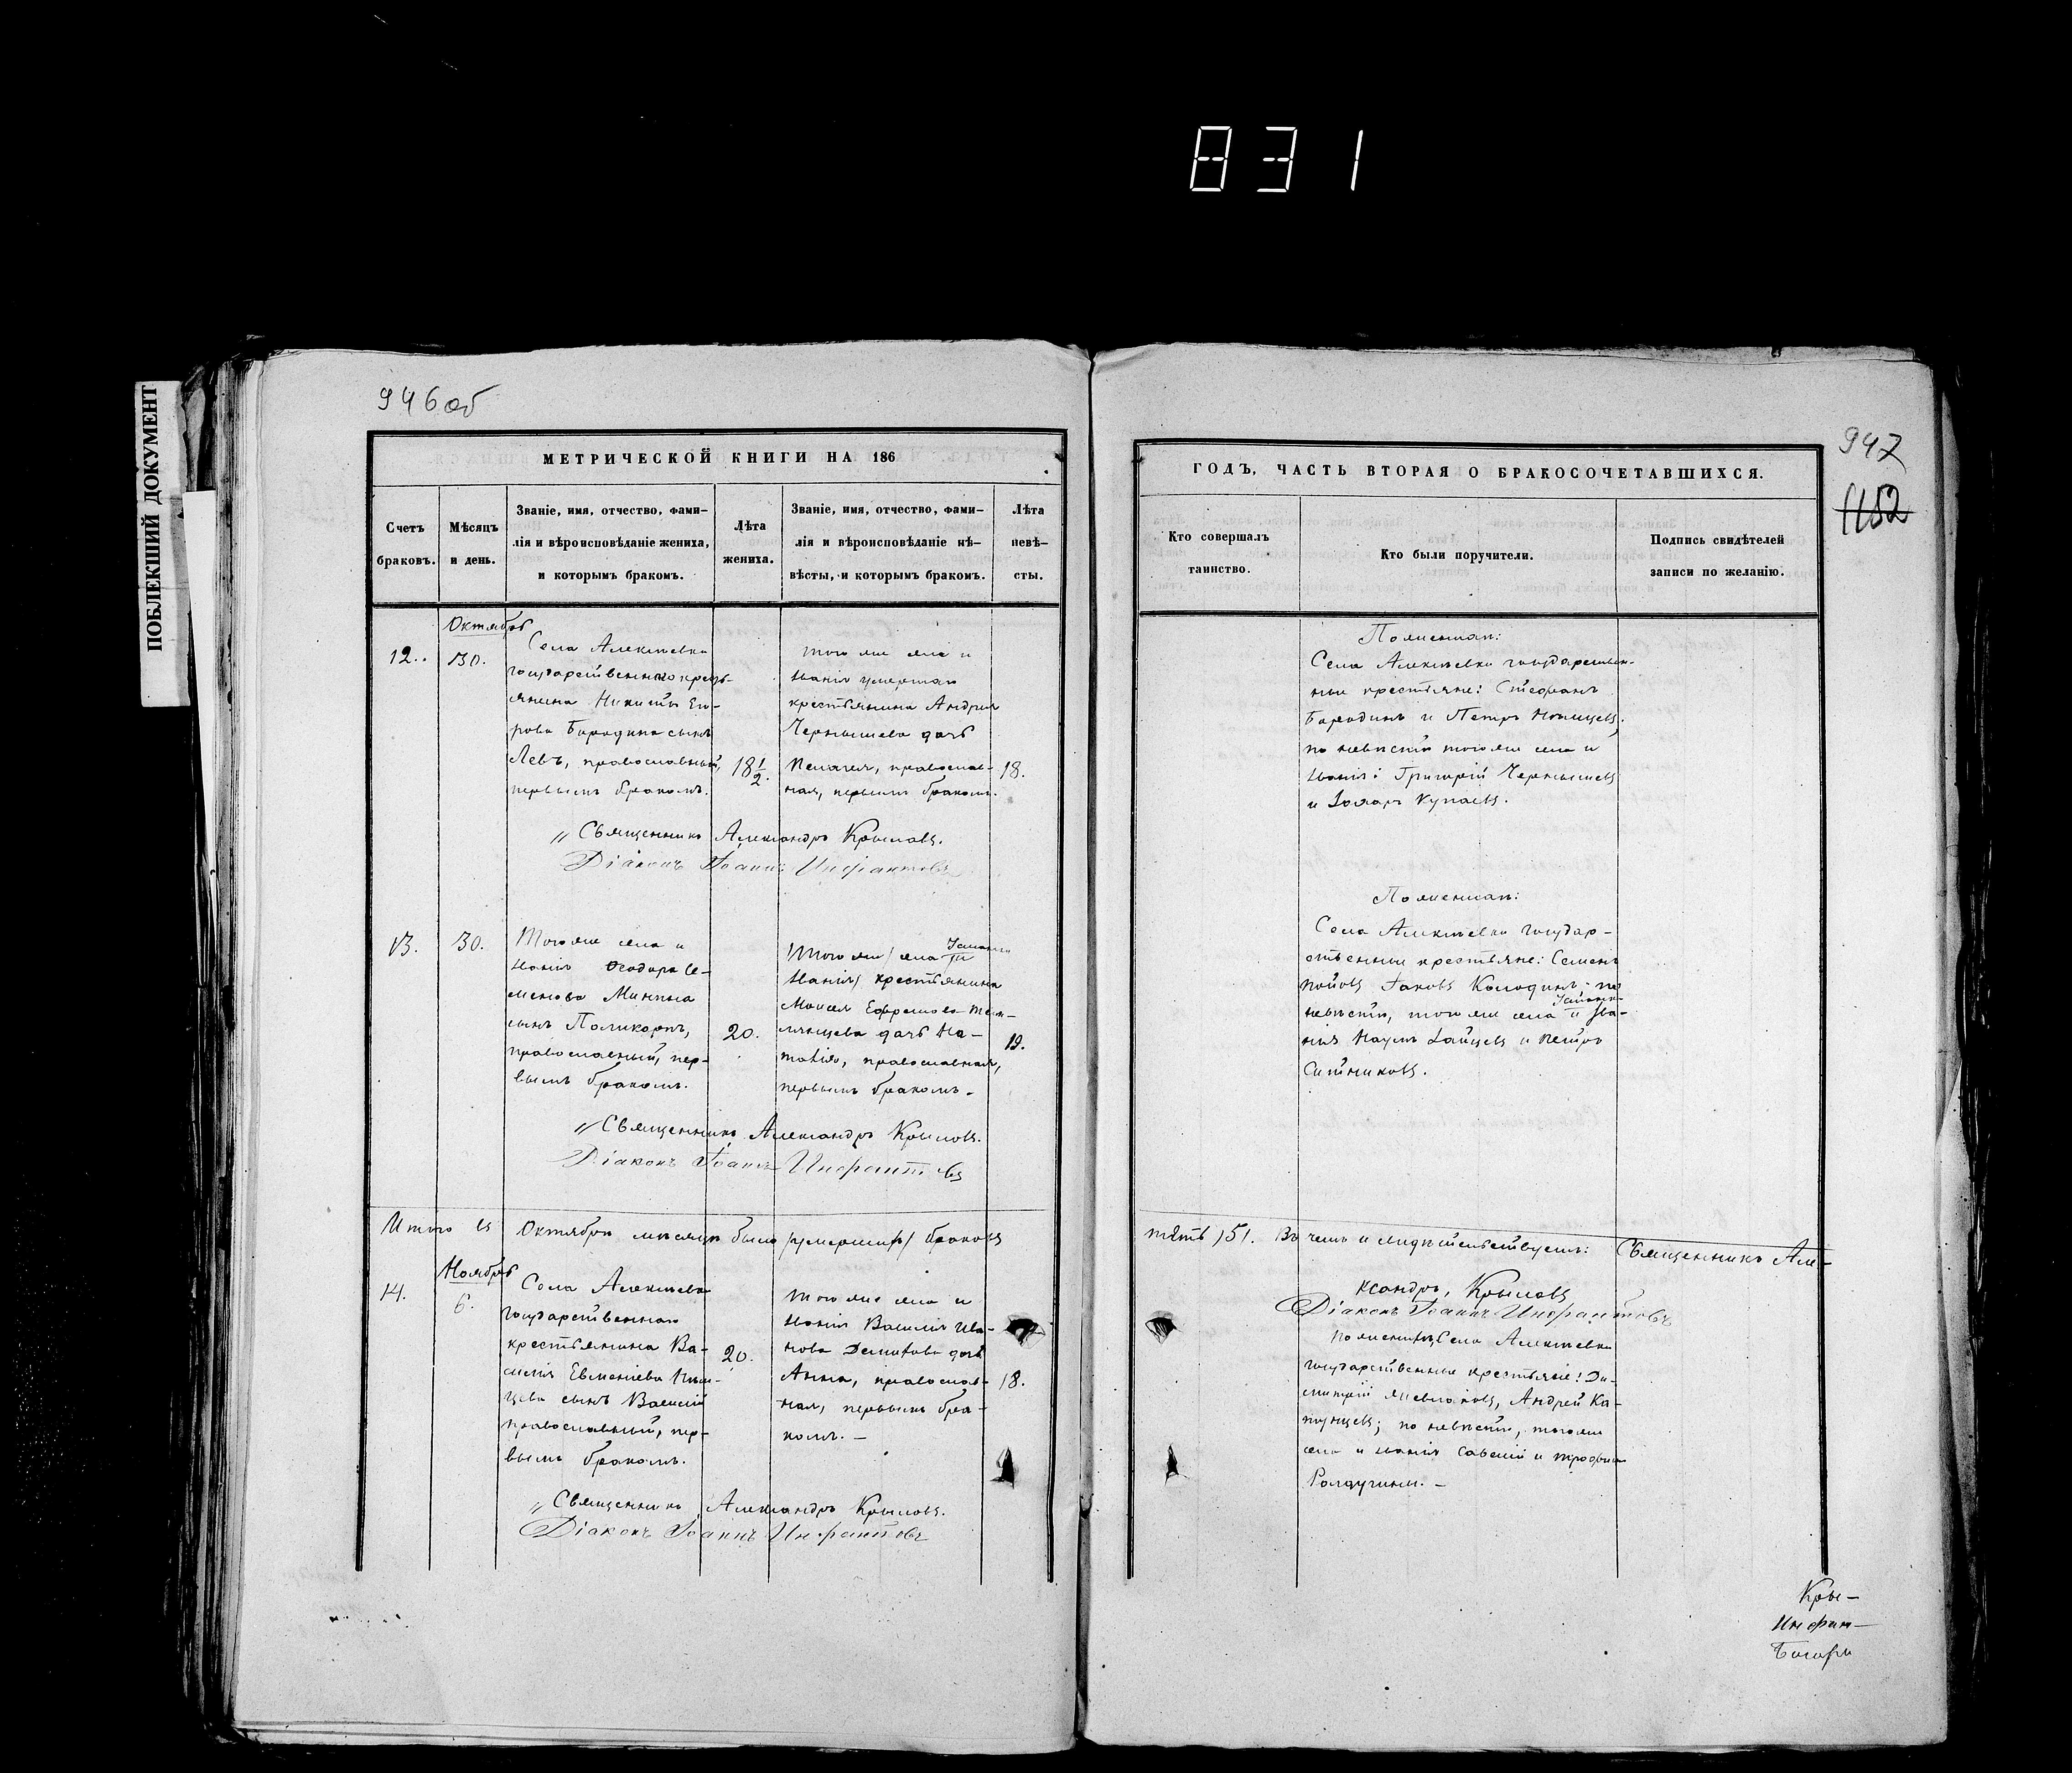 831
ПОБЛЕКШИЙ ДОКУМЕНТ
946 об
МЕТРИЧЕСКОЙ КНИГИ НА 186
Счетъ браковъ.
Мѣсяцъ и день.
Званіе, имя, отчество, фами-
лія и вѣроисповѣданіе жениха,
и которымъ бракомъ.
Лѣта
жениха.
Званіе, имя, отчество, фами-
лія и вѣроисповѣданіе нѣ-
вѣсты, и которымъ бракомъ.
Лѣта
невѣ-
сты.
12.
Октябрь
30.
Села Алексѣевки
государственнаго кресть-
янина Никиты Его-
рова Бородина сынъ
Левъ, православный,
первымъ бракомъ.
18 1/2.
того же села и
званія умершаго
крестьянина Андрея
Чернышева дочь
Пелагея, православ-
ная, первымъ бракомъ.
18.
„Священникъ Александръ Крыловъ.
Діаконъ Іоаннъ Инфантовъ
13.
30.
Того же села и
званія Ѳеодора Се-
менова Минина
сынъ Поликарпъ,
православный, пер-
вымъ бракомъ.
20.
Того же села
званія крестьянина
Моисея Ефремова
дочь На-
талія, православная,
первымъ бракомъ.
19.
„Священникъ Александръ Крыловъ.
Діаконъ Іоаннъ Инфантовъ
Итого въ Октябрѣ мѣсяцѣ было /умершихъ/ браковъ
14.
Ноябрь
6.
Села Алексѣевки
государственнаго
крестьянина Ва-
силія Евменіева
сынъ Василій
православный, пер-
вымъ бракомъ.
20.
того же села и
званія Василія Ива-
нова дочь
Анна, православ-
ная, первымъ бра-
комъ. —
18.
„Священникъ Александръ Крыловъ.
Діаконъ Іоаннъ Инфантовъ
947
1152
ГОДЪ, ЧАСТЬ ВТОРАЯ О БРАКОСОЧЕТАВШИХСЯ.
Кто совершалъ
таинство.
Кто были поручители.
Подпись свидѣтелей
записи по желанію.
По женихѣ:
Села Алексѣевки государствен-
ные крестьяне: Стефанъ
Бородинъ и Петръ
по невѣстѣ того же села и
званія: Григорій Чернышевъ
и Захаръ Купаевъ.
По женихѣ:
Села Алексѣевки государ-
ственные крестьяне: Семенъ
Поповъ Іаковъ Колодинъ; по
невѣстѣ, того же села и зва-
нія Наумъ Зайцевъ и Петръ
Ситниковъ.
пять /5/. Въ чемъ и свидѣтельствуемъ: Священникъ Але-
ксандръ Крыловъ
Діаконъ Іоаннъ Инфантовъ
По женихѣ, Села Алексѣевки
государственные крестьяне: Ди-
митрій Андрей Ка-
пунцевъ; по невѣстѣ, того же
села и званія Савелій и Трофимъ
Ролдугины. —
Кры-
Инфан-